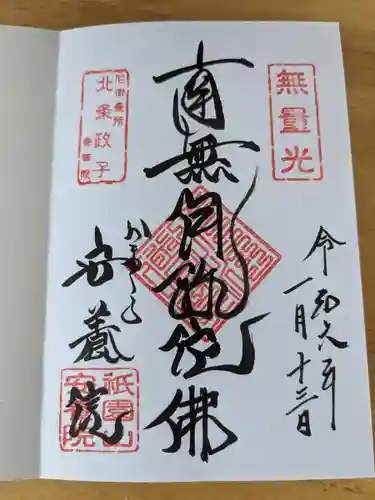 無量光
令和六年
一月十三日
南無阿弥陀佛
北条政子
かまくら
安養院
祇園山
安養院